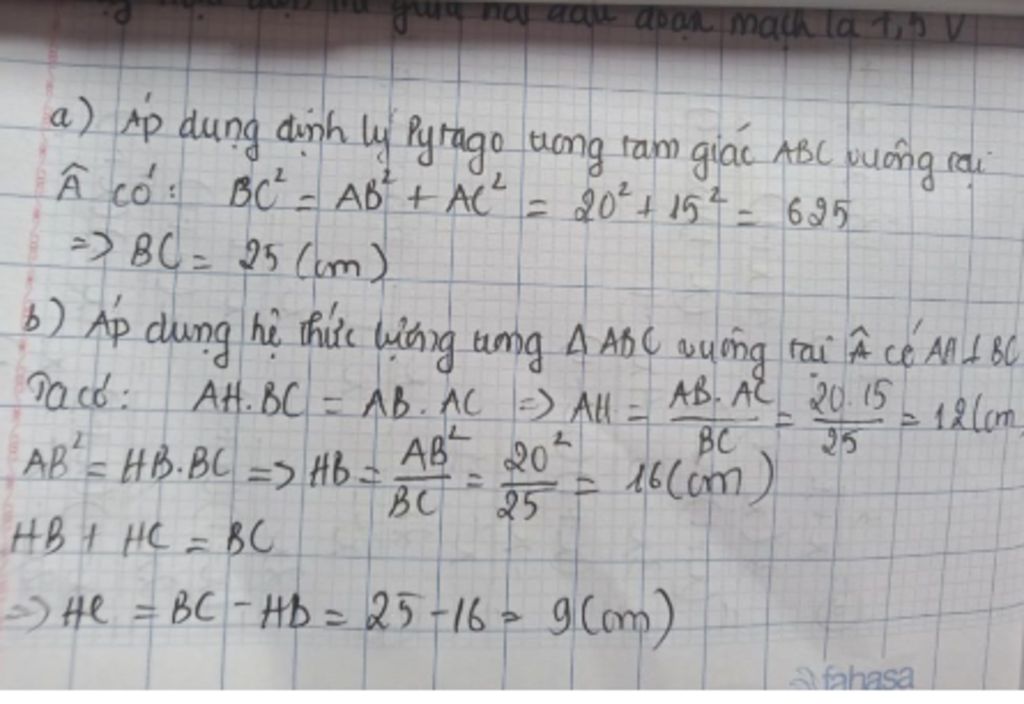 giữa hai đầu đoạn mạch là 1,5 V
a) Áp dụng định lý Pytago trong tam giác ABC vuông tại
Â có: BC² = AB² + AC² = 20² + 15² = 625
=> BC = 25 (cm)
b) Áp dụng hệ thức lượng trong Δ ABC vuông tại Â có AH ⊥ BC
Ta có: AH.BC = AB.AC => AH = \frac{AB.AC}{BC} = \frac{20.15}{25} = 12(cm
AB² = HB.BC => HB = \frac{AB²}{BC} = \frac{20²}{25} = 16(cm)
HB + HC = BC
=> HC = BC - HB = 25 - 16 = 9(cm)
fahasa